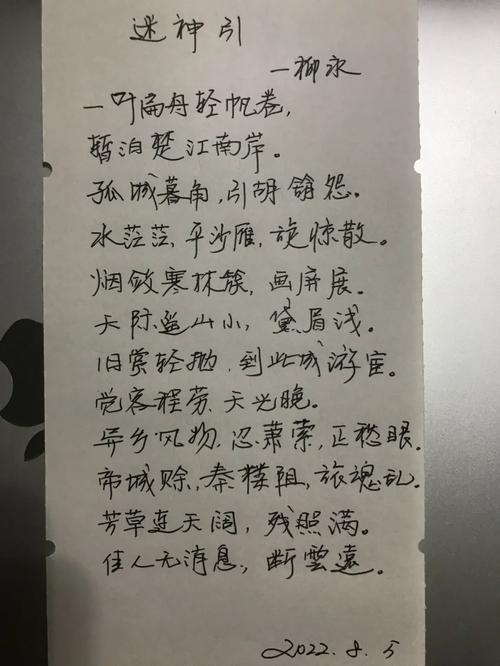 迷神引
—柳永
一叶扁舟轻帆卷，
暂泊楚江南岸。
孤城暮角，引胡笳怨。
水茫茫，平沙雁，旋惊散。
烟敛寒林簇，画屏展。
天际遥山小，黛眉浅。
旧赏轻抛，到此城游宦。
觉客程劳，天光晚。
异乡风物，忍萧索，正愁眼。
帝城赊，秦楼阻，旅魂乱。
芳草连天阔，残照满。
佳人无消息，断雲遠。
2022.8.5